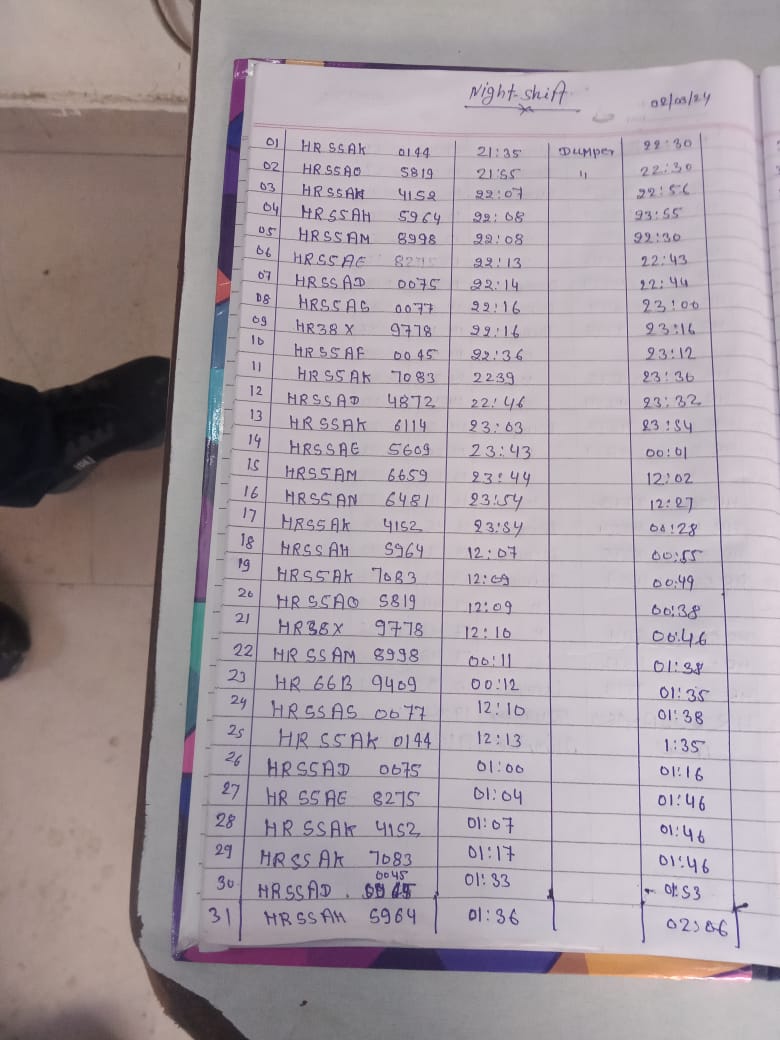 Night shift
02/03/24
01 HRSSAK 0144 21:35 Dumper 22:30
02 HRSSAO 5819 21:55 " 22:30
03 HRSSAK 4152 22:07 22:56
04 HRSSAH 5964 22:08 23:55
05 HRSSAM 8998 22:08 22:30
06 HRSSAE 8275 22:13 22:43
07 HRSSAD 0075 22:14 22:44
08 HRSSAS 0077 22:16 23:00
09 HR38X 9778 22:16 23:16
10 HRSSAF 0045 22:36 23:12
11 HRSSAK 7083 2239 23:36
12 HRSSAD 4872 22:46 23:32
13 HRSSAK 6114 23:03 23:54
14 HRSSAE 5609 23:43 00:01
15 HRSSAM 6659 23:44 12:02
16 HRSSAN 6481 23:54 12:27
17 HRSSAK 4152 23:54 00:28
18 HRSSAH 5964 12:07 00:55
19 HRSSAK 7083 12:09 00:49
20 HRSSAO 5819 12:09 00:38
21 HR38X 9778 12:10 00:46
22 HRSSAM 8998 00:11 01:38
23 HR 66B 9409 00:12 01:35
24 HRSSAS 0077 12:10 01:38
25 HRSSAK 0144 12:13 1:35
26 HRSSAD 0075 01:00 01:16
27 HRSSAE 8275 01:04 01:46
28 HRSSAK 4152 01:07 01:46
29 HRSSAK 7083 01:17 01:46
30 HRSSAD 0045 01:33 01:53
31 HRSSAH 5964 01:36 02:06